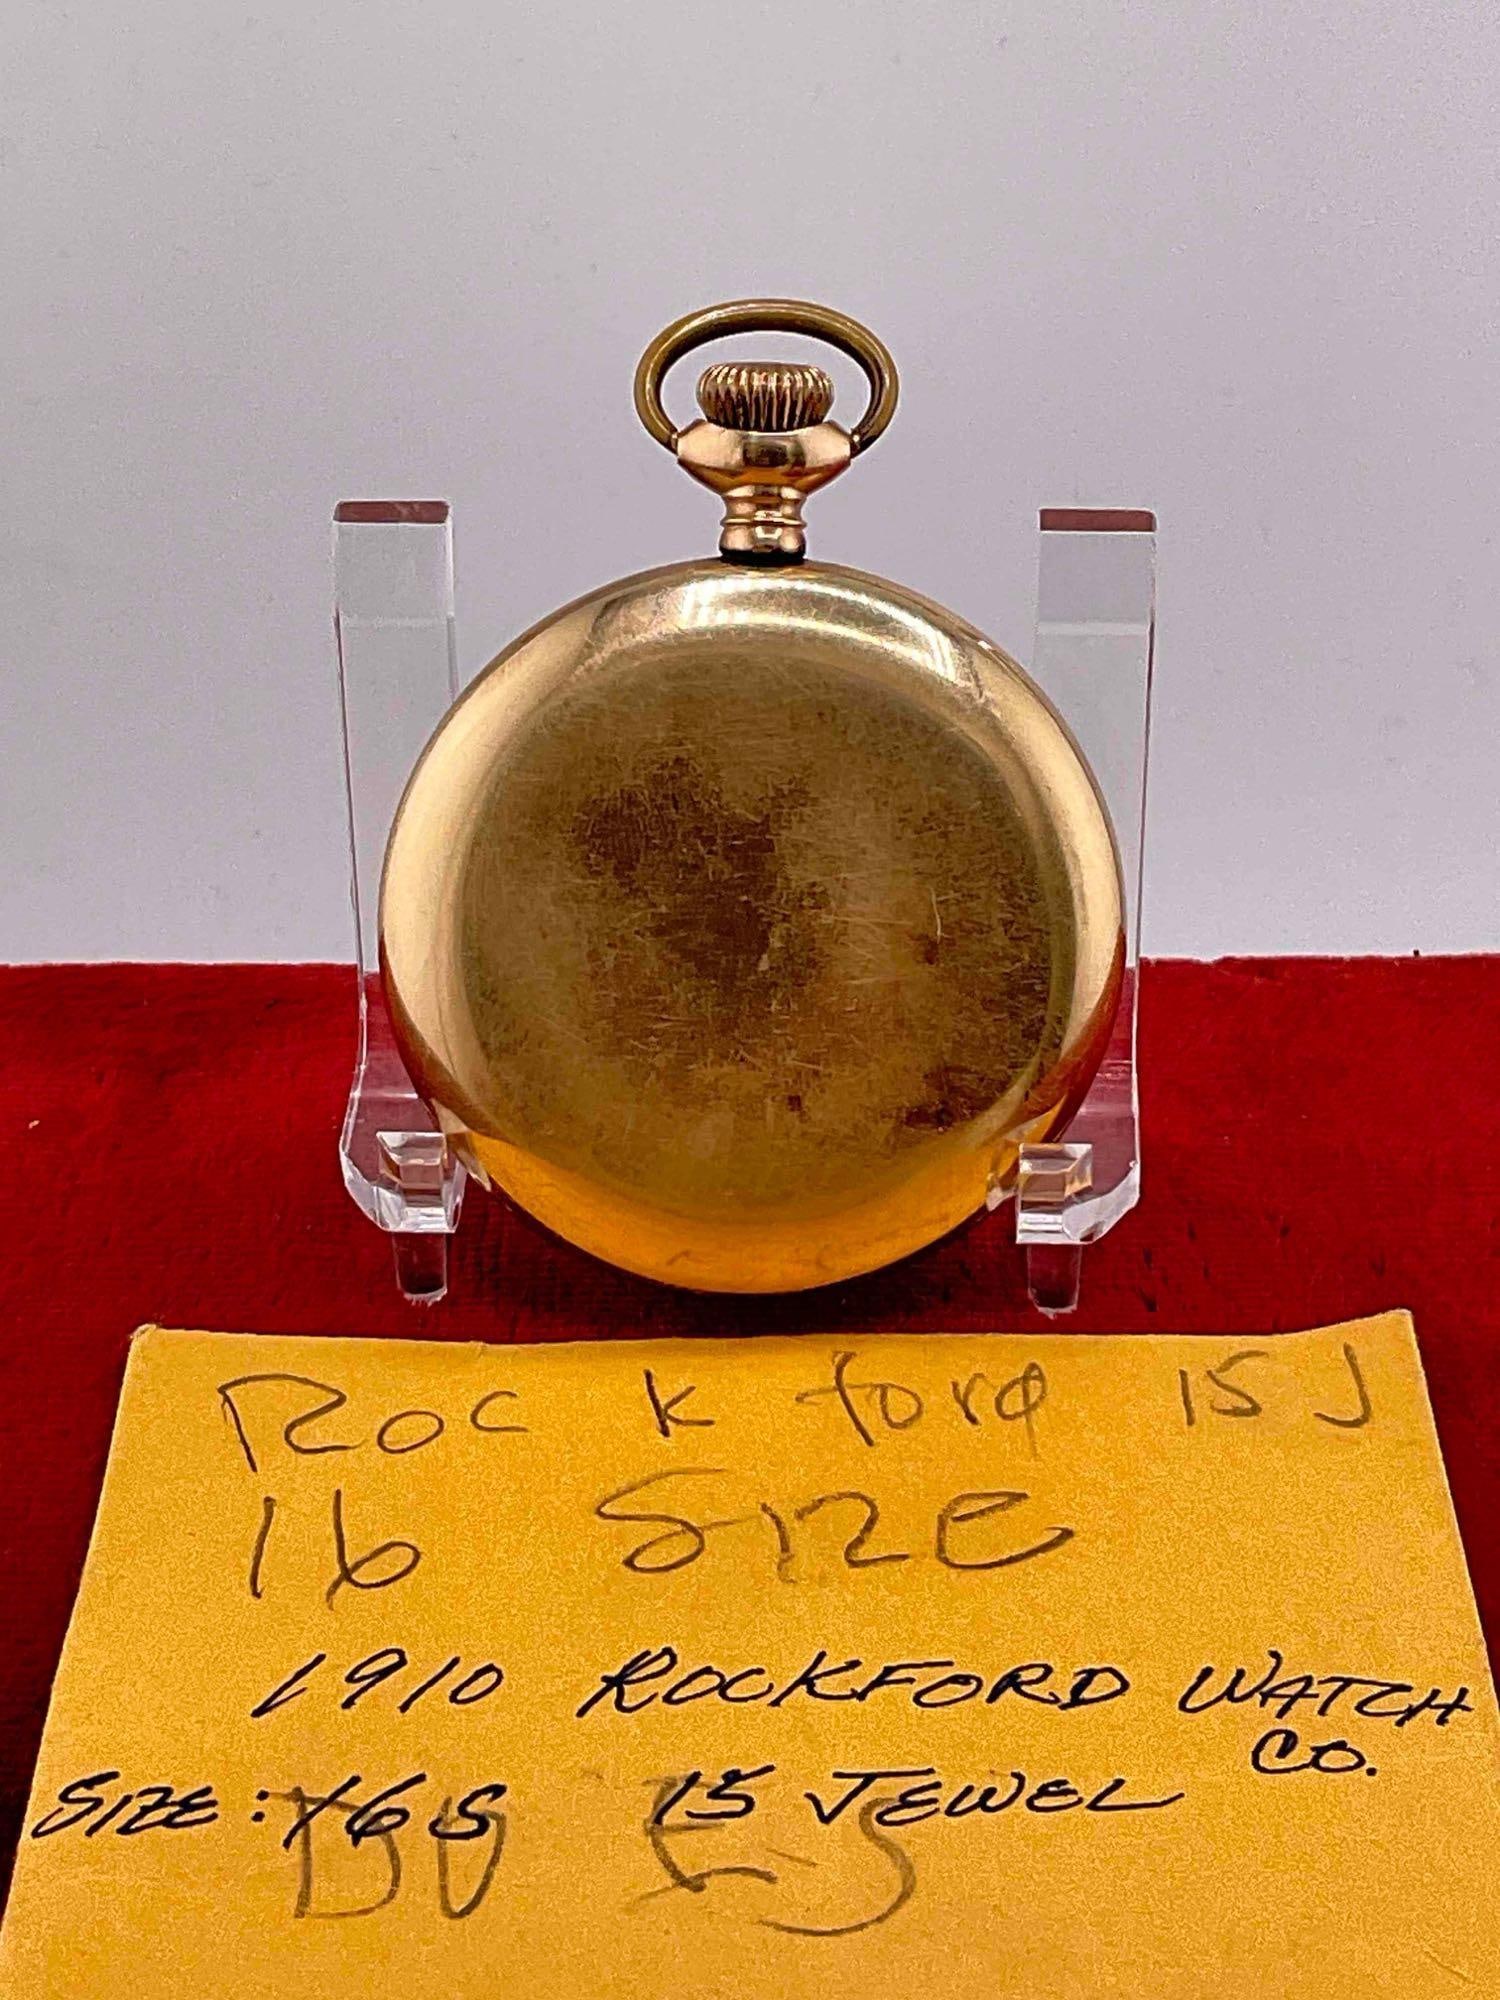 Rockford 15 J
16 SIZE
1910 ROCKFORD WATCH
CO.
SIZE: 16 S 15 JEWEL